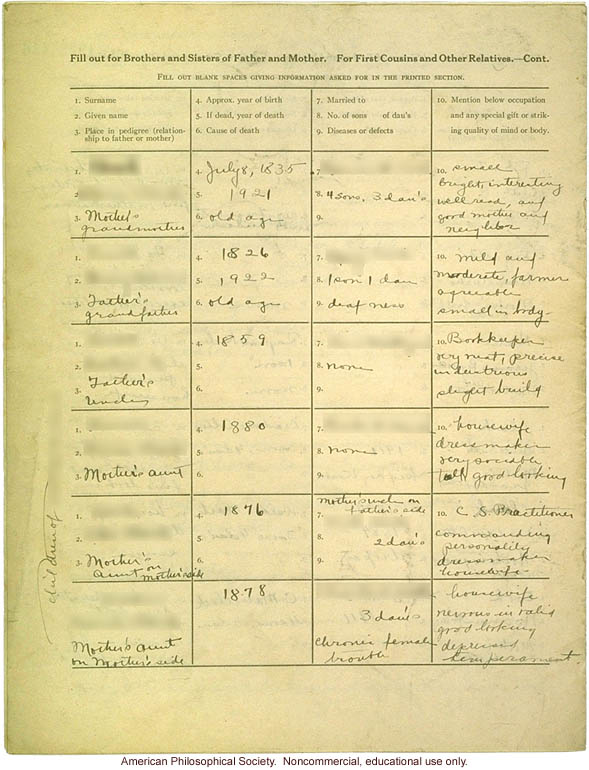 Fill out for Brothers and Sisters of Father and Mother. For First Cousins and Other Relatives.—Cont.
FILL OUT BLANK SPACES GIVING INFORMATION ASKED FOR IN THE PRINTED SECTION.
1. Surname
2. Given name
3. Place in pedigree (relation-
ship to father or mother)
4. Approx. year of birth
5. If dead, year of death
6. Cause of death
7. Married to
8. No. of sons of dau's
9. Diseases or defects
10. Mention below occupation
and any special gift or strik-
ing quality of mind or body.
1.
2.
3. Mother's
grandmother
4. July 8, 1835
5. 1921
6. old age
7.
8. 4 sons, 3 dau's
9.
10. small
bright, interesting
well read, and
good mother and
neighbor
1.
2.
3. Father's
grandfather
4. 1826
5. 1922
6. old age
7.
8. 1 son 1 dau
9. deafness
10. mild and
moderate, farmer
agreeable
small in body-
1.
2.
3. Father's
Uncle
4. 1859
5.
6.
7.
8. none
9.
10. Bookkeeper
very neat, precise
industrious
slight build
1.
2.
3. Mother's aunt
4. 1880
5.
6.
7.
8. none
9.
10. housewife
dressmaker
very sociable
tall good looking
1.
2.
3. Mother's
Aunt on mother's side
4. 1876
5.
6.
mother's uncle on
7. father's side
8. 2 dau's
9.
10. C. S. Practitioner
commanding
personality
dressmaker
housewife
Mother's aunt
on Mother's side
1878
3 dau's
Chronic female
trouble
housewife
nervous invalid
good looking
depressed
temperament.
children of
American Philosophical Society. Noncommercial, educational use only.